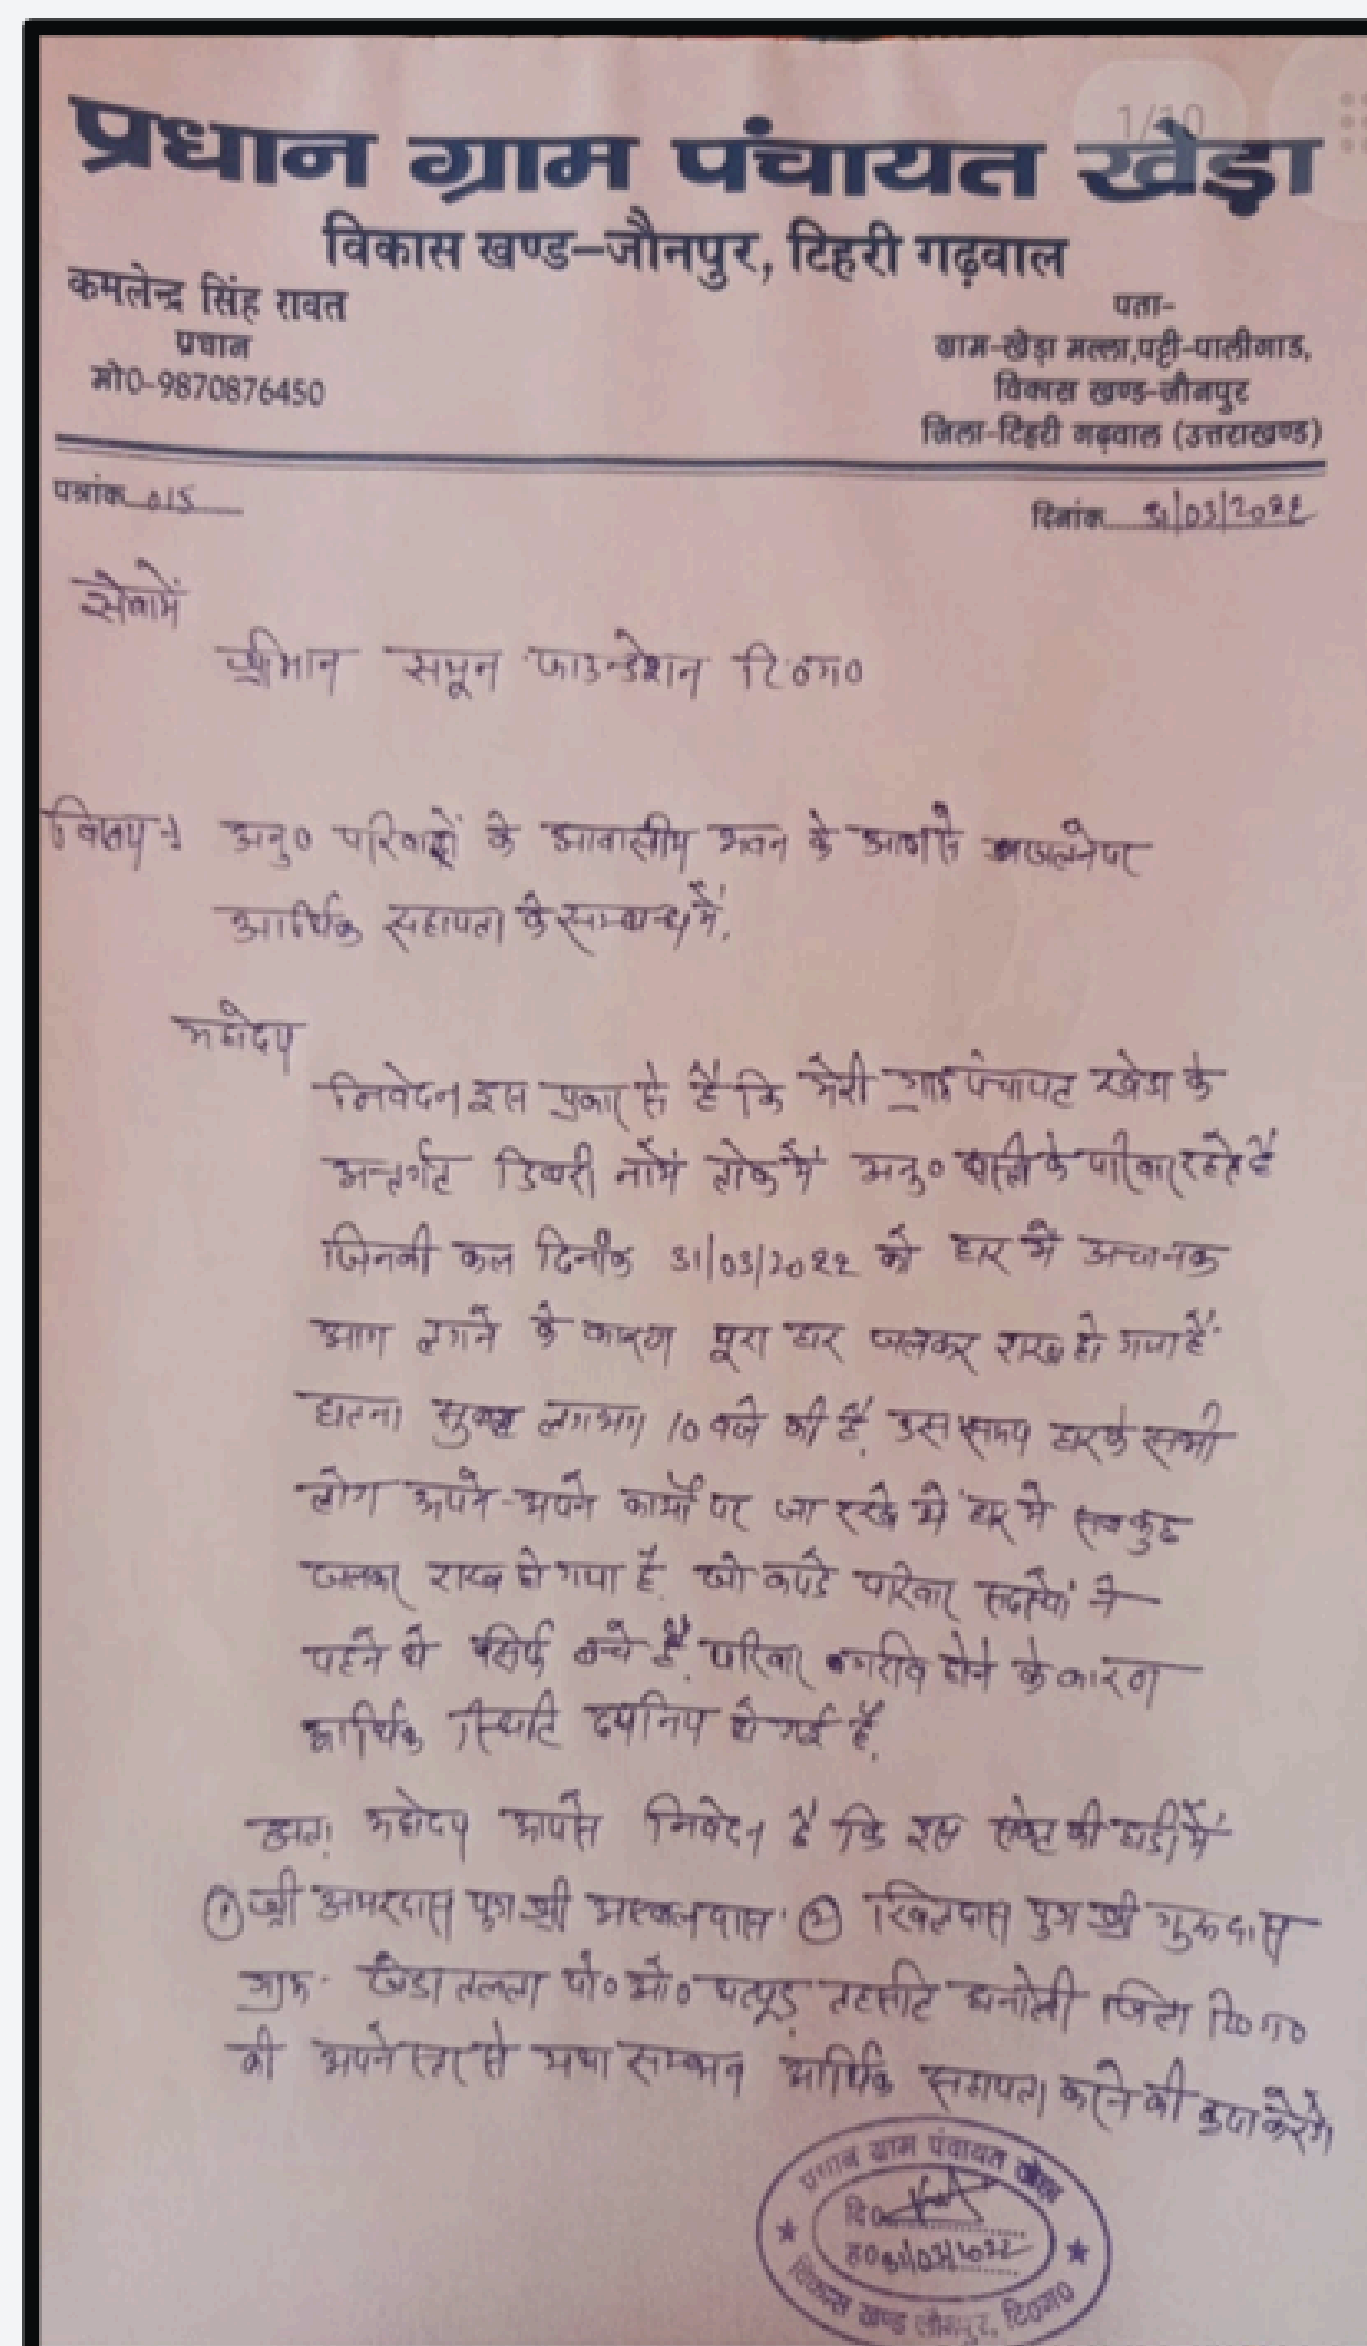 1/10
प्रधान ग्राम पंचायत खेड़ा
विकास खण्ड-जौनपुर, टिहरी गढ़वाल
कमलेन्द्र सिंह रावत
प्रधान
मो0-9870876450
पता-
ग्राम-खेड़ा मल्ला,पट्टी-पालीगाड,
विकास खण्ड-जौनपुर
जिला-टिहरी गढ़वाल (उत्तराखण्ड)
पत्रांक 015
दिनांक 31/03/2022
सेवामें
श्रीमान समून फाउन्डेशन टि०ग०
विषय:- अनु० परिवारों के आवासीय भवन के आगसे जलनेपर
आर्थिक सहायता के सम्बन्ध में.
महोदय
निवेदन इस प्रकार से है कि मेरी ग्राम पंचायत खेडा के
अन्तर्गत नामें तोक में अनु० जाती के परिवार रहते है
जिनकी कल दिनांक 31/03/2022 को घर में अचानक
आग लगने के कारण पूरा घर जलकर राख हो गया है
घटना सुबह लगभग 10 बजे की है. उस समय घरके सभी
लोग अपने-अपने कार्यों पर जा रखे थे घर में सबकुछ
जलकर राख हो गया है. जो कपडे परिवार सदस्यों ने
पहने थे सिर्फ बचे है. परिवार गरीब होने के कारण
आर्थिक स्थिति दयनिय हो गई है.
अतः महोदय आपसे निवेदन है कि इस संकट की घडी में
① श्री अमरदास पुत्र श्री ② पुत्र श्री गुरुदास
ग्राम- खेडा तल्ला पो०ओ० थत्यूड़ तहसील धनोल्टी जिला टि०ग०
की अपने स्तर से यथा सम्भव आर्थिक सहायता करने की कृपा करेंगे
प्रधान ग्राम पंचायत खेड़ा
दि०
ह० 31/03/2022
विकास खण्ड जौनपुर, टि०ग०